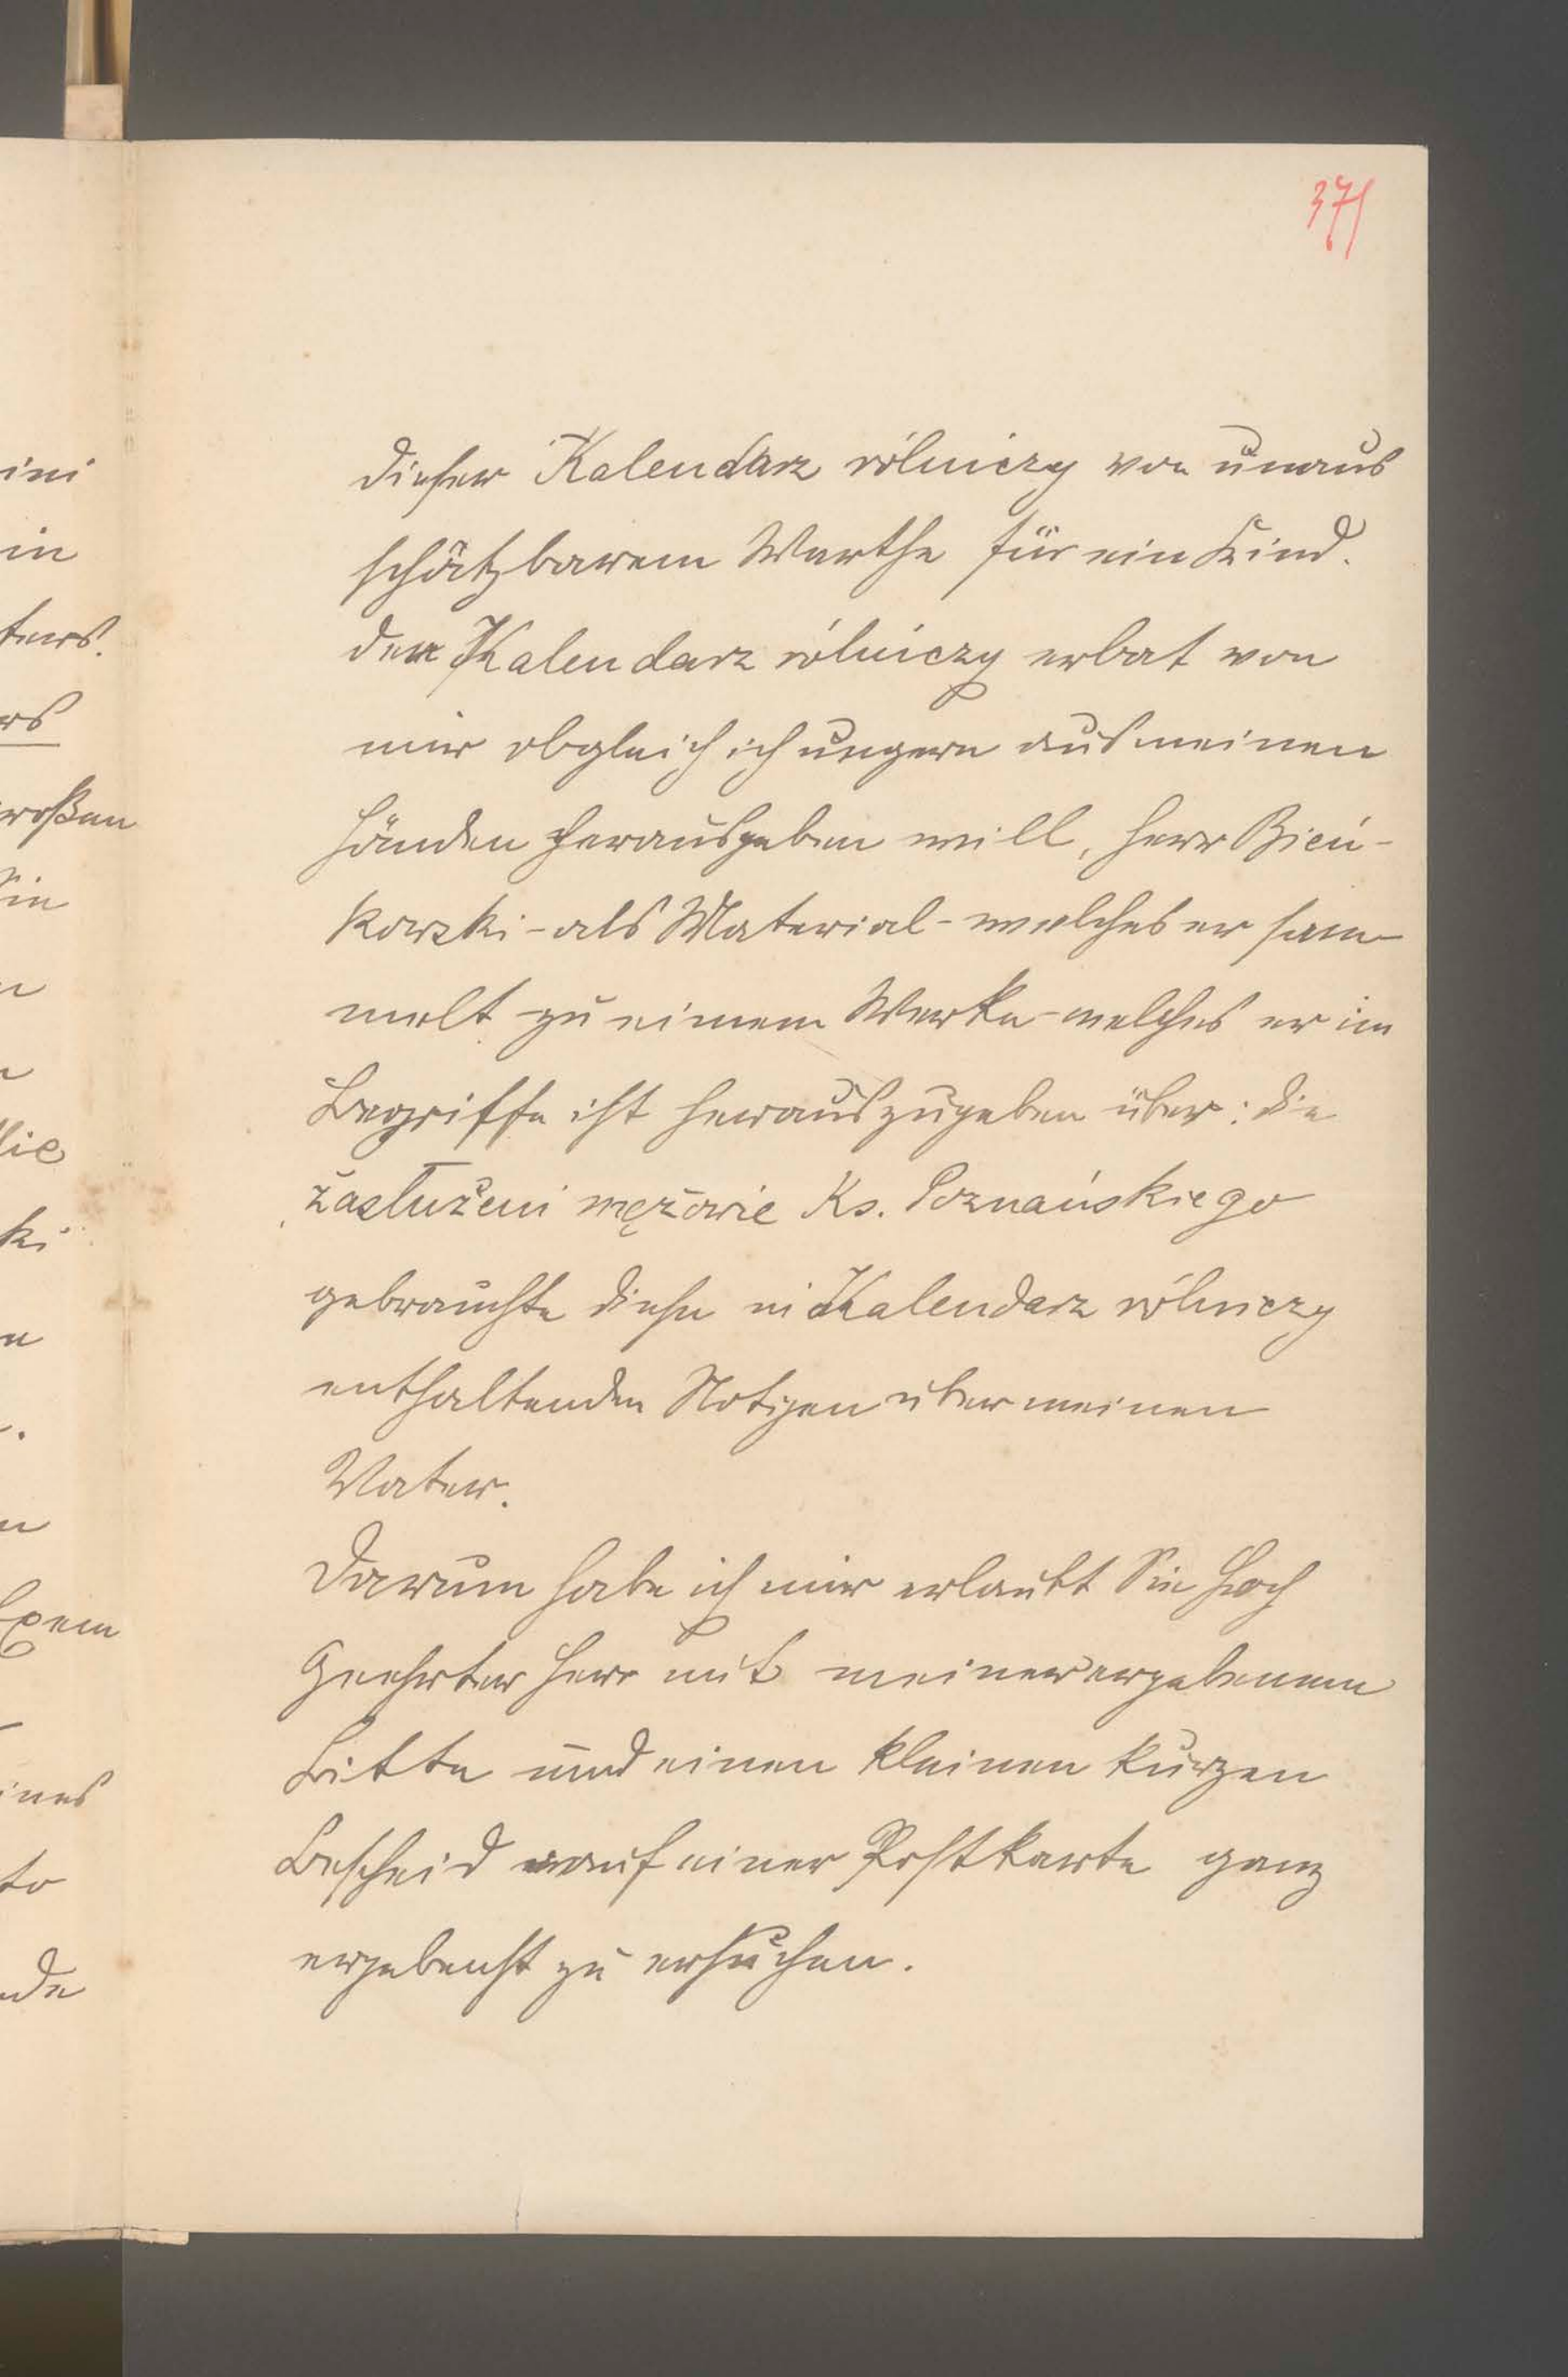 371
dieser Kalendarz rólniczy von unaus
schätzbarem Werthe für ein Kind.
den Kalendarz rólniczy erbat von
mir obgleich ich ungern aus meinen
Händen herausgeben will, Herr Bień-
kowski - als Material - welches er sam-
melt zu einem Werke - welches er im
Begriffe ist herauszugeben über: die
zasłużeni mężowie Ks. Poznańskiego
gebrauchte diese in Kalendarz rólniczy
enthaltenden Notizen über meinen
Vater.
Darum habe ich mir erlaubt Sie Hoch
Geehrter Herr mit meiner ergebenen
Bitte und einen kleinen kurzen
Bescheid auf einer Postkarte ganz
ergebenst zu ersuchen.